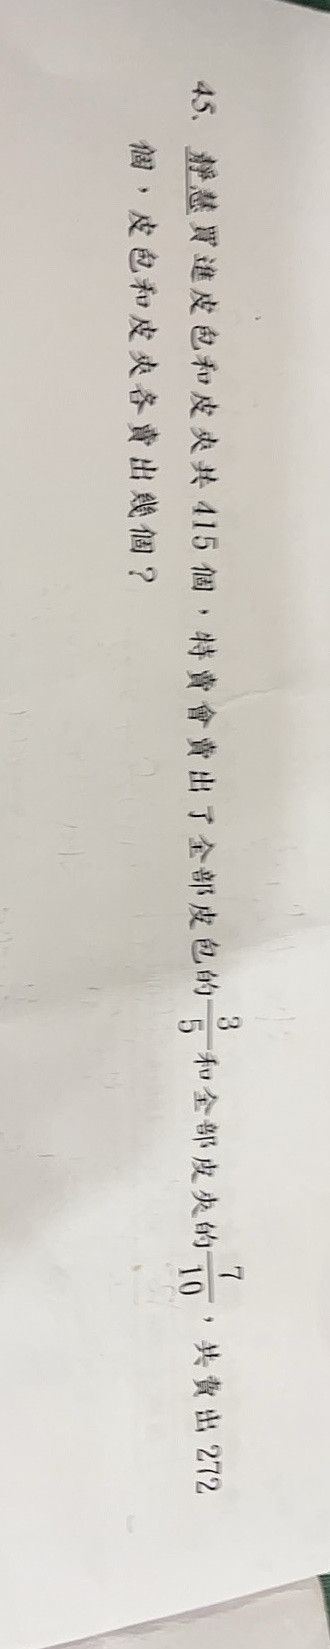 45、靜慧買進皮包和皮夾共415個，特賣會賣出了全部皮包的3/5和全部皮夾的7/10，共賣出272
個，皮包和皮夾各賣出幾個？